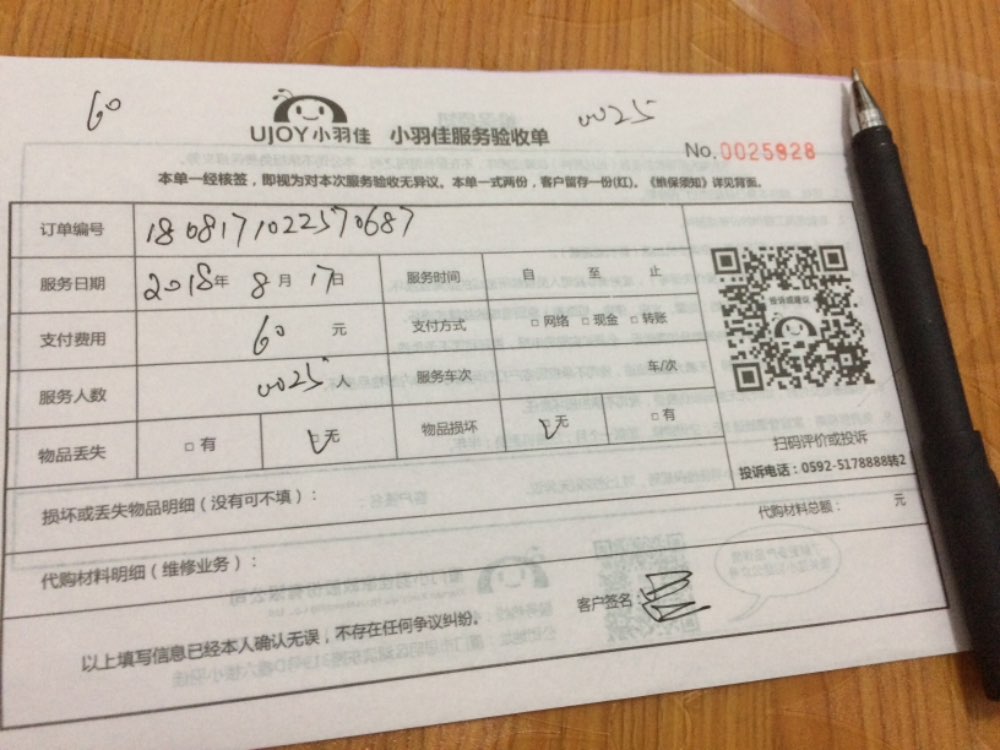 60
0025
UJOY小羽佳 小羽佳服务验收单
No.0025928
本单一经核签，即视为对本次服务验收无异议。本单一式两份，客户留存一份(红)。《维保须知》详见背面。
订单编号 1808171022570687
服务日期 2018年 8月 17日 服务时间 自 至 止
支付费用 60 元 支付方式 □网络 □现金 □转账
服务人数 0025 人 服务车次 车/次
物品丢失 □有 □无 物品损坏 □无 □有
投诉或建议
扫码评价或投诉
投诉电话：0592-5178888转2
损坏或丢失物品明细（没有可不填）：
代购材料总额： 元
代购材料明细（维修业务）：
客户签名：
以上填写信息已经本人确认无误，不存在任何争议纠纷。